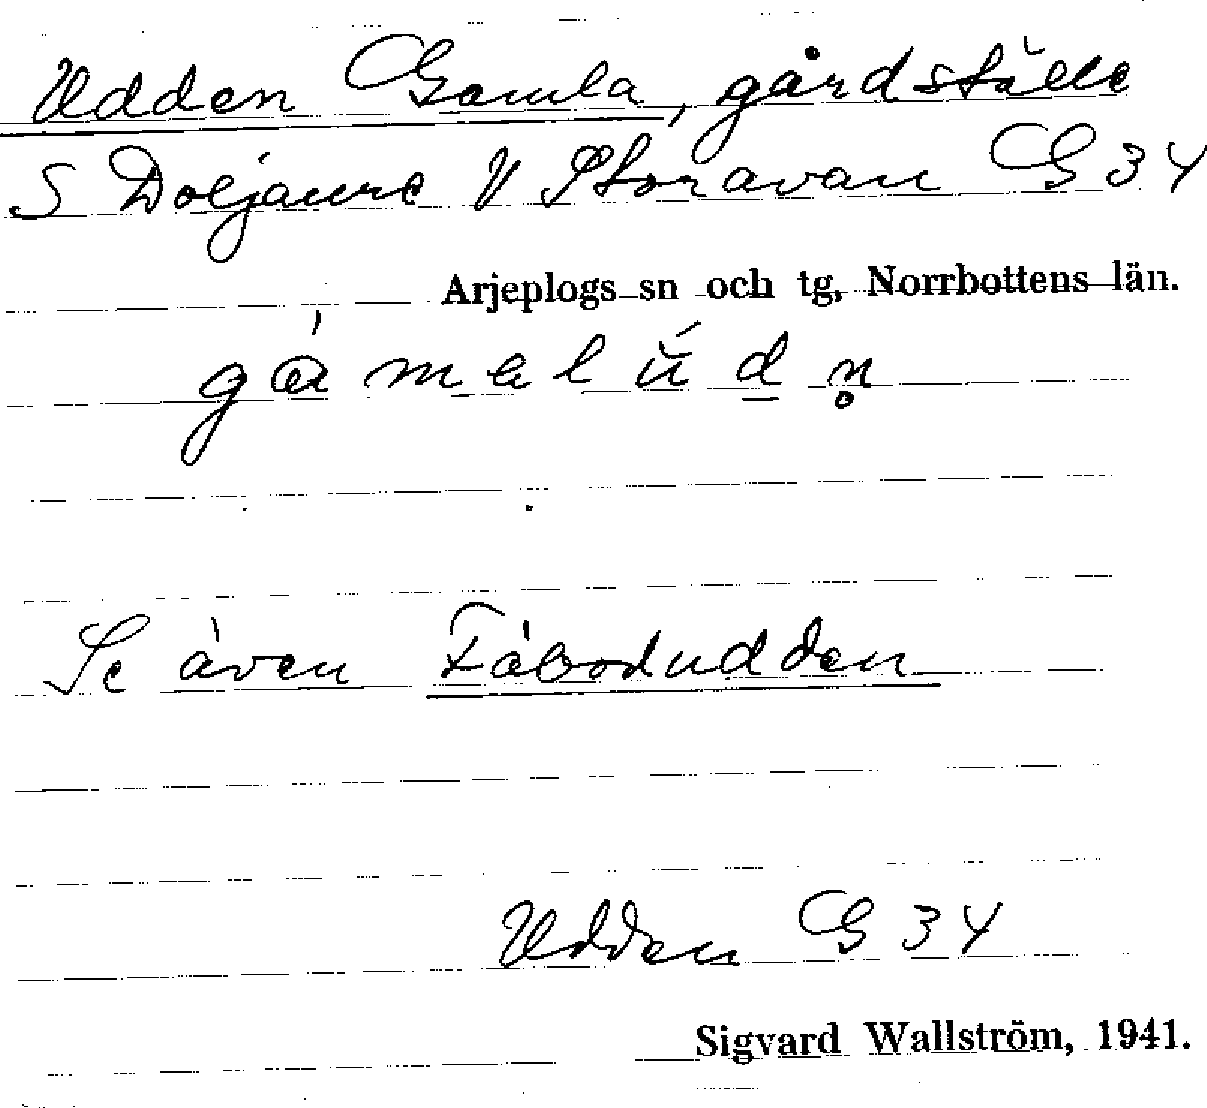 Udden Gamla, gårdställe
S Doljaure V Storavan G 34
Arjeplogs sn och tg, Norrbottens län.
gàmalúdn̥
Se även Fäbodudden
Udden G 34
Sigvard Wallström, 1941.